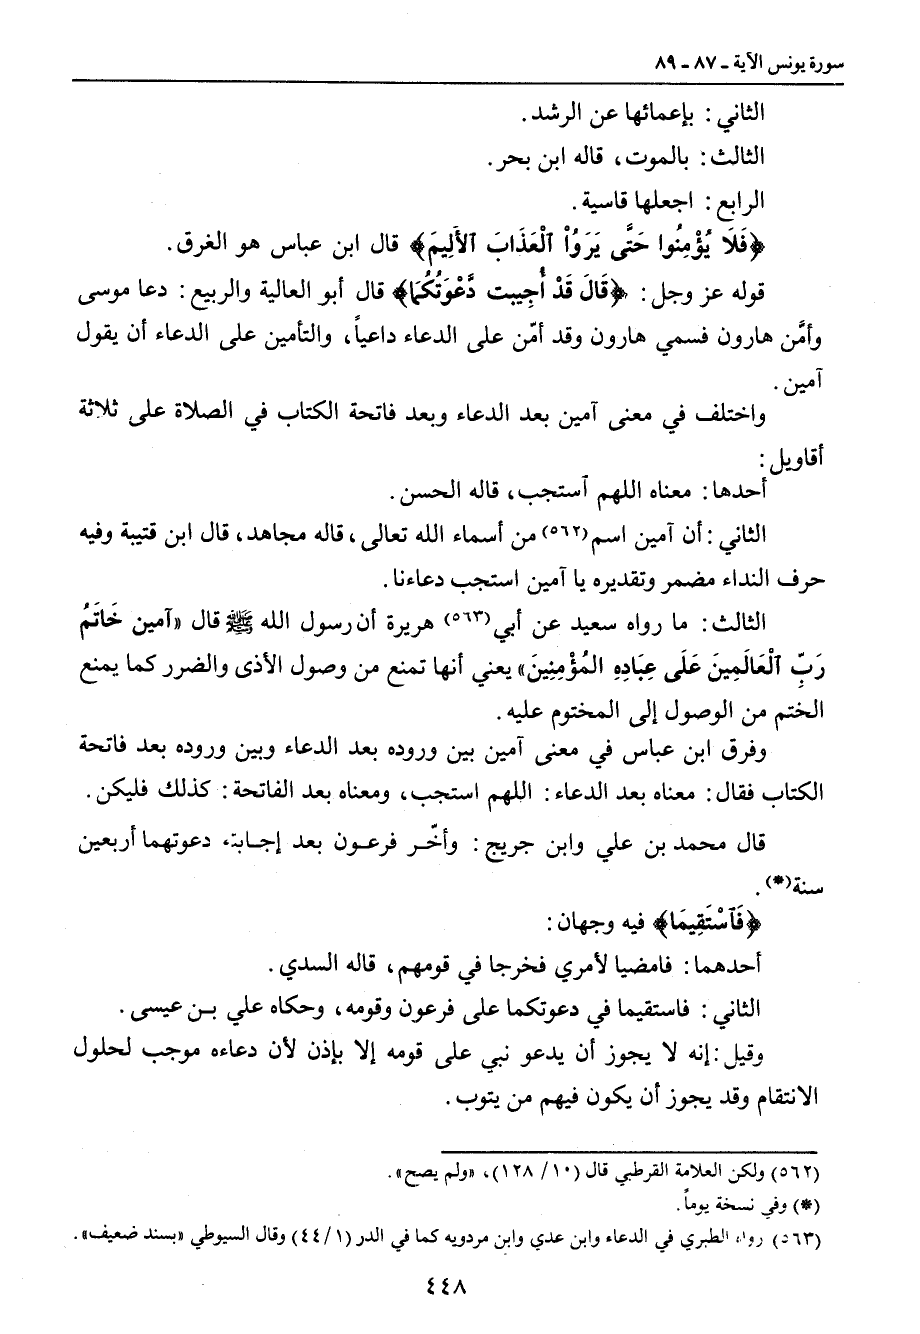 سورة يونس الآية - ٨٧ - ٨٩
الثاني : بإعمائها عن الرشد .
الثالث : بالموت ، قاله ابن بحر .
الرابع : اجعلها قاسية .
﴿فَلَا يُؤْمِنُوا حَتَّى يَرَوُاْ ٱلْعَذَابَ ٱلأَلِيمَ﴾ قال ابن عباس هو الغرق .
قوله عز وجل : ﴿قَالَ قَدْ أُجِيبت دَّعْوَتُكُمَا﴾ قال أبو العالية والربيع : دعا موسى
وأمَّن هارون فسمي هارون وقد أمّن على الدعاء داعياً ، والتأمين على الدعاء أن يقول
آمين .
واختلف في معنى آمين بعد الدعاء وبعد فاتحة الكتاب في الصلاة على ثلاثة
أقاويل :
أحدها : معناه اللهم ٱستجب ، قاله الحسن .
الثاني : أن آمين اسم(٥٦٢) من أسماء الله تعالى ، قاله مجاهد ، قال ابن قتيبة وفيه
حرف النداء مضمر وتقديره يا آمين استجب دعاءنا .
الثالث : ما رواه سعيد عن أبي(٥٦٣) هريرة أن رسول الله ﷺ قال «آمين خَاتَمُ
رَبِّ ٱلْعَالَمِينَ عَلَى عِبَادِهِ المُؤْمِنِينَ» يعني أنها تمنع من وصول الأذى والضرر كما يمنع
الختم من الوصول إلى المختوم عليه .
وفرق ابن عباس في معنى آمين بين وروده بعد الدعاء وبين وروده بعد فاتحة
الكتاب فقال : معناه بعد الدعاء : اللهم استجب ، ومعناه بعد الفاتحة : كذلك فليكن .
قال محمد بن علي وابن جريج : وأخّر فرعون بعد إجابة دعوتهما أربعين
سنة(*) .
﴿فَٱسْتَقِيمَا﴾ فيه وجهان :
أحدهما : فامضيا لأمري فخرجا في قومهم ، قاله السدي .
الثاني : فاستقيما في دعوتكما على فرعون وقومه ، وحكاه علي بن عيسى .
وقيل : إنه لا يجوز أن يدعو نبي على قومه إلا بإذن لأن دعاءه موجب لحلول
الانتقام وقد يجوز أن يكون فيهم من يتوب .
(٥٦٢) ولكن العلامة القرطبي قال (١٠/ ١٢٨) ، «ولم يصح» .
(*) وفي نسخة يوماً .
(٥٦٣) رواه الطبري في الدعاء وابن عدي وابن مردويه كما في الدر (١/ ٤٤) وقال السيوطي «بسند ضعيف» .
٤٤٨